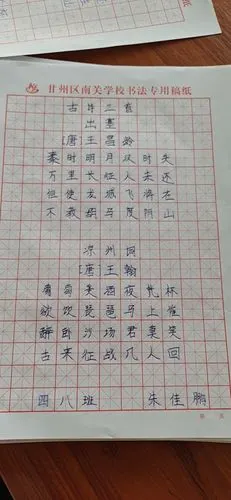 甘州区南关学校书法专用稿纸
古诗二首
出塞
[唐]王昌龄
秦时明月汉时关
万里长征人未还
但使龙城飞将在
不教胡马度阴山
凉州词
[唐]王翰
葡萄美酒夜光杯
欲饮琵琶马上催
醉卧沙场君莫笑
古来征战几人回
四八班 朱佳鹏